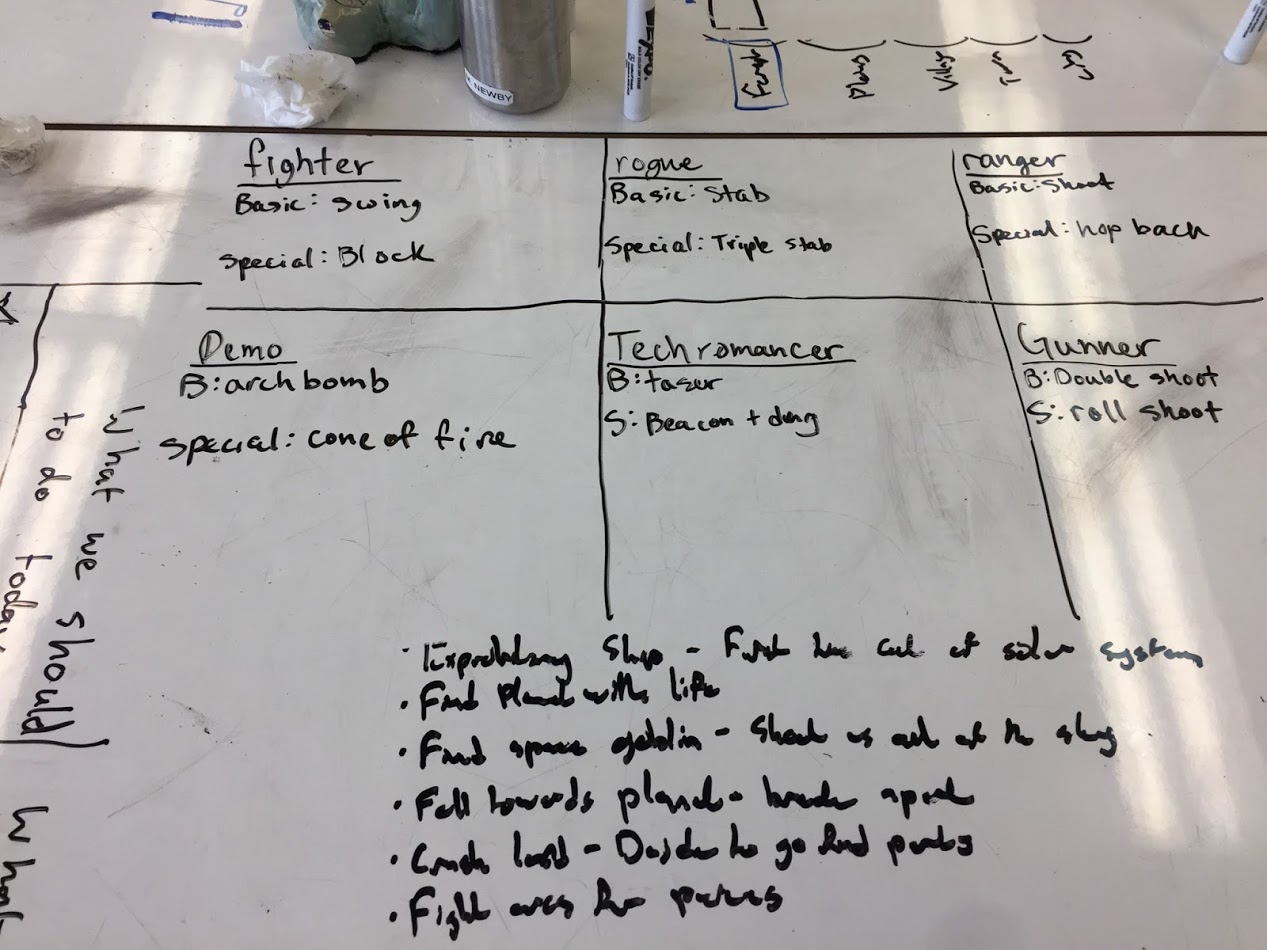 EXPO
NEWBY
fighter
Basic: swing
Special: Block
rogue
Basic: Stab
Special: Triple stab
ranger
Basic: Shoot
Special: hop back
Demo
B: arch bomb
Special: cone of fire
Techromancer
B: taser
S: Beacon + dmg
Gunner
B: Double shoot
S: roll shoot
What we should
to do today
What
• Exploratory Ship - First time out of solar system
• Find Planet with life
• Find space goblin - Shoot us out of the sky
• Fall towards planet - break apart
• Crash land - Decide to go find parts
• Fight orcs for